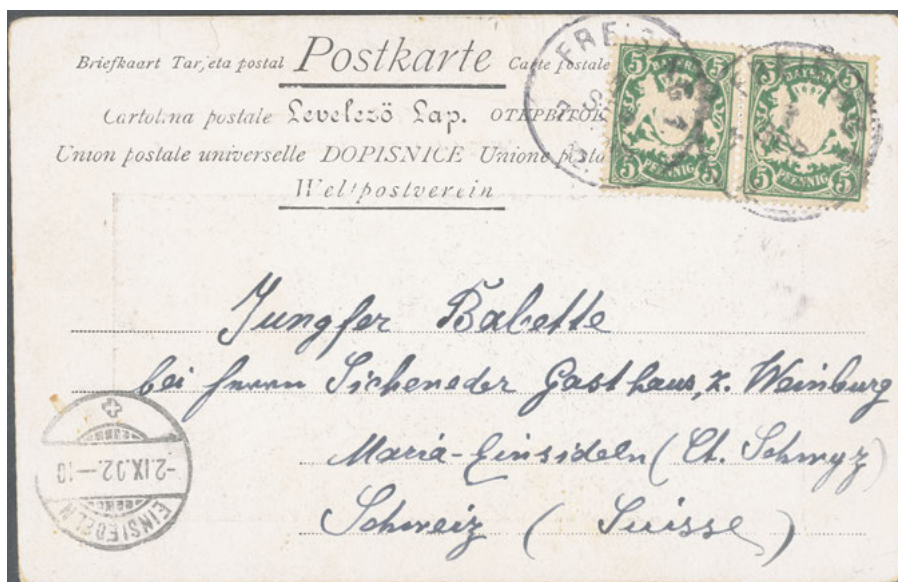 Briefkaart Tarjeta postal Postkarte Carte postale
Cartolina postale Levelező Lap.
Union postale universelle DOPISNICE Unione
Weltpostverein
5 5
BAYERN
PFENNIG
5 5
5 5
BAYERN
PFENNIG
5 5
Jungfer Babette
bei Herrn Sicheneder Gasthaus, z. Weinburg
Maria-Einsideln (Ct. Schwyz)
Schweiz ( Suisse )
-2.IX.02.-10
EINSIEDELN